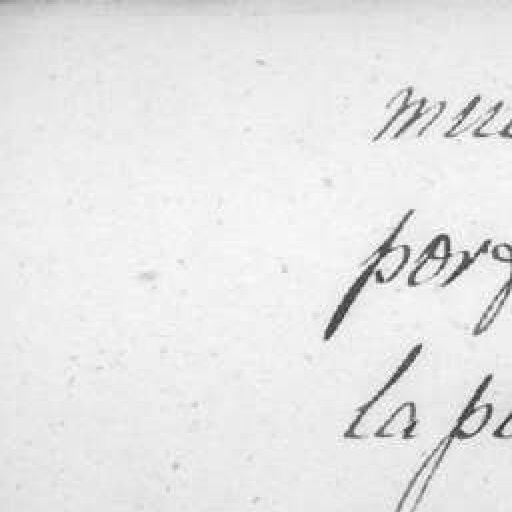 mue
porq
la pa